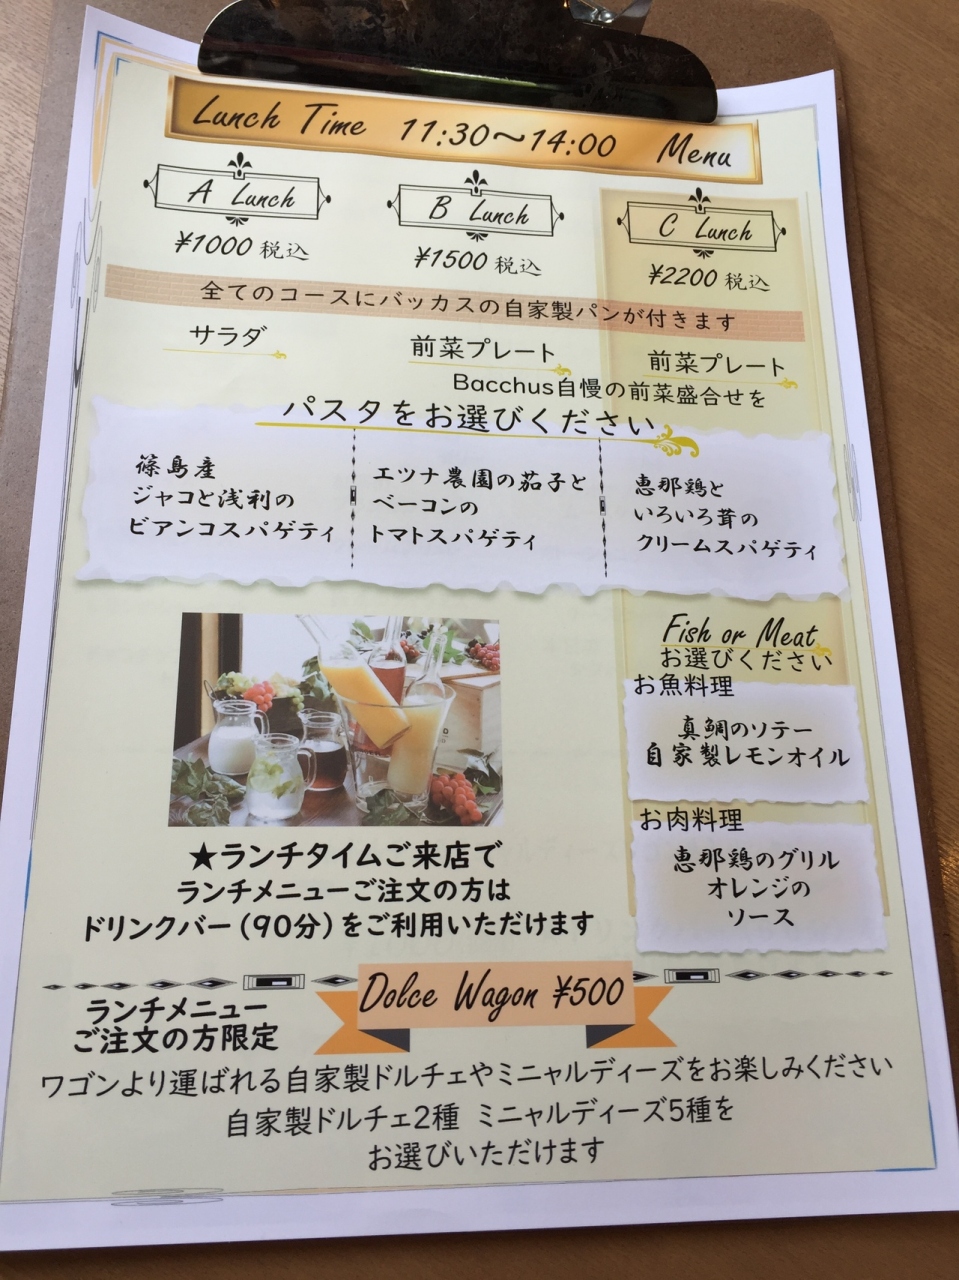 Lunch Time 11:30～14:00 Menu
A Lunch
¥1000 税込
B Lunch
¥1500 税込
C Lunch
¥2200 税込
全てのコースにバッカスの自家製パンが付きます
サラダ
前菜プレート
前菜プレート
Bacchus自慢の前菜盛合せを
パスタをお選びください
篠島産
ジャコと浅利の
ビアンコスパゲティ
エツナ農園の茄子と
ベーコンの
トマトスパゲティ
恵那鶏と
いろいろ茸の
クリームスパゲティ
Fish or Meat
お選びください
お魚料理
真鯛のソテー
自家製レモンオイル
お肉料理
恵那鶏のグリル
オレンジの
ソース
★ランチタイムご来店で
ランチメニューご注文の方は
ドリンクバー(90分)をご利用いただけます
Dolce Wagon ¥500
ランチメニュー
ご注文の方限定
ワゴンより運ばれる自家製ドルチェやミニャルディーズをお楽しみください
自家製ドルチェ2種 ミニャルディーズ5種を
お選びいただけます